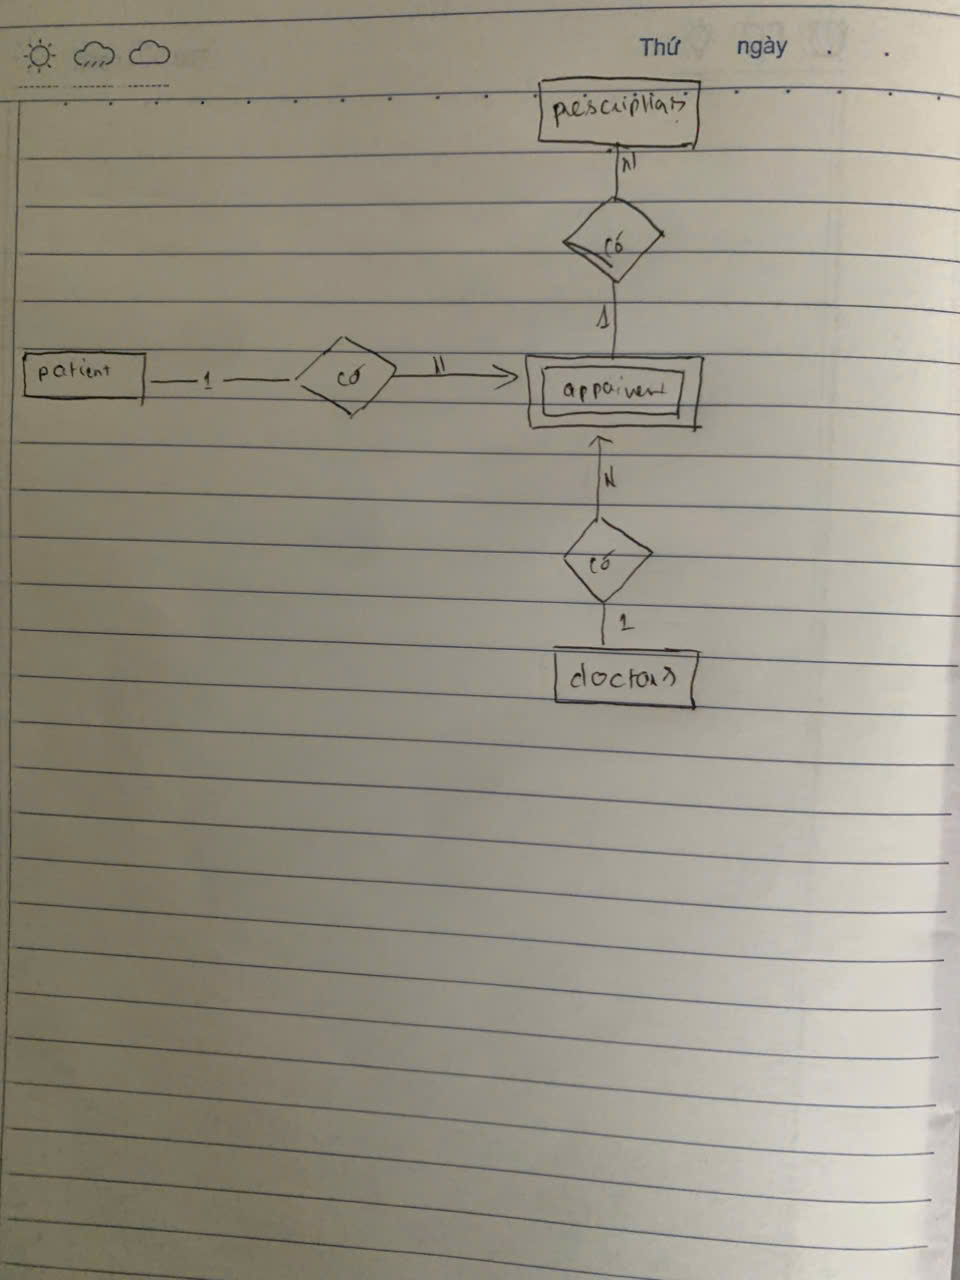 Thứ ngày
prescriptions
N
có
1
patient 1 có N
N
có
1
doctors